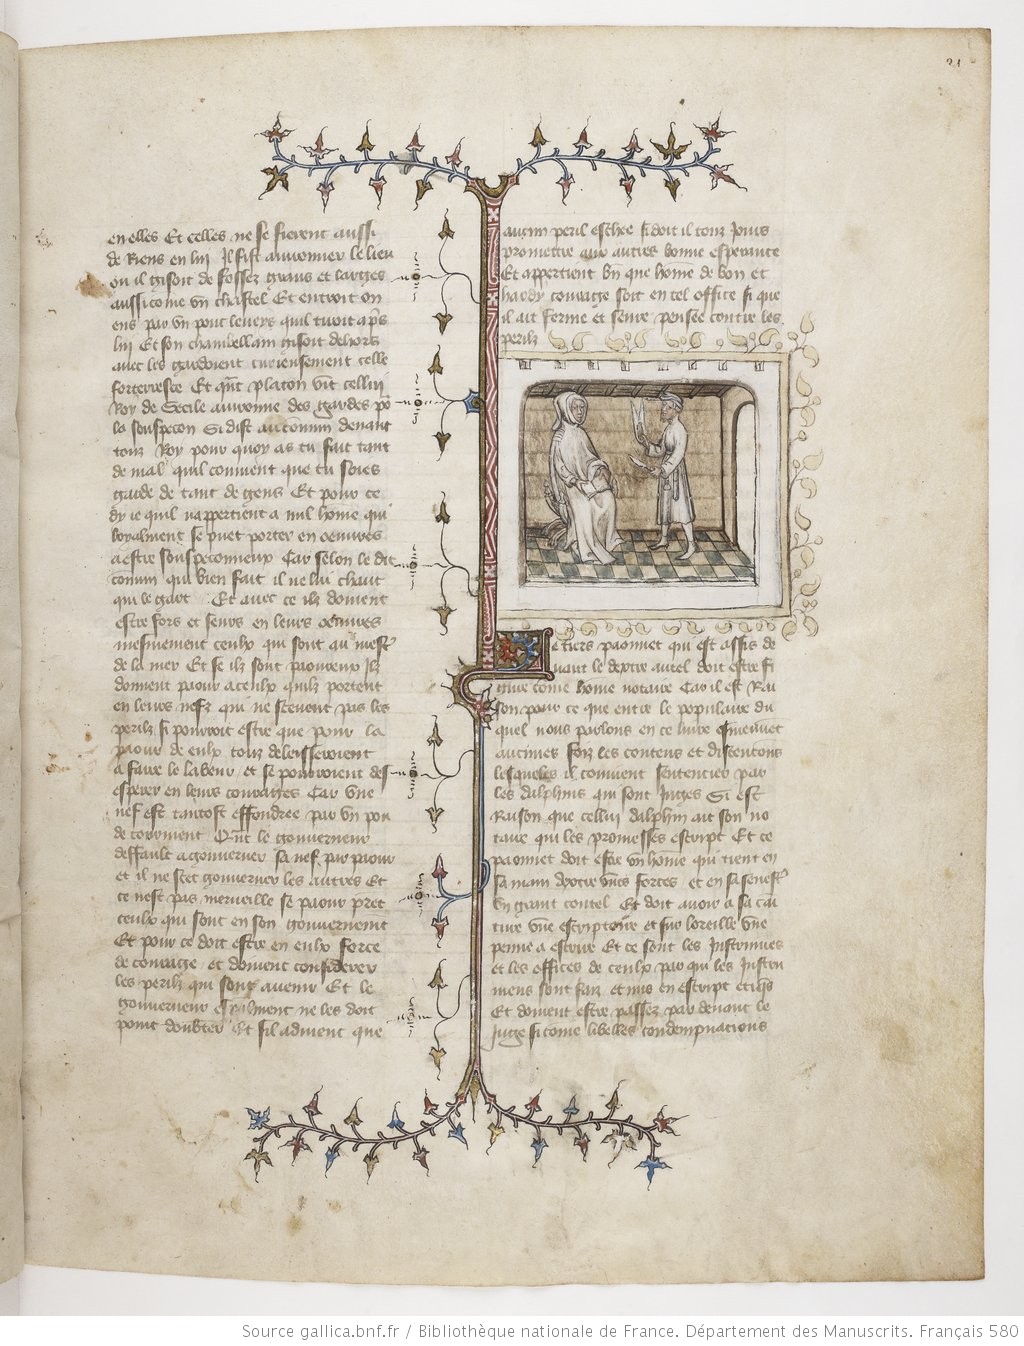 21
en elles Et celles ne se fierent aussi
de Riens en lui Il fist auironner le lieu
ou il gisoit de fossez grans et larges
aussi come vn chastel Et entroit on
ens par vn pont leueys quil tiroit aps
lui Et son chambellam gisoit dehors
auec les gardoient curieusement celle
forteresce Et qnt platon vit cellui
Roy de Secile auironne des gardes po
la souspecon Si dist au comun deuant
touz Roy pour quoy as tu fait tant
de mal quil conuient que tu soies
garde de tant de gens Et pour ce
dy ie quil nappertient a nul home qui
loyalment se puet porter en oeuures
a estre souspeconneux Car selon le dit
comun qui bien fait il ne lui chaut
qui le gart Et auec ce ilz doiuent
estre fors et seurs en leurs oeuures
mesmement ceulx qui sont au mest
de la mer Et se ilz sont paoureux Ilz
donnent paour a ceulx quilz portent
en leurs nefz qui ne sceuent pas les
perilz si pourroit estre que pour la
paour de eulx touz delaisseroient
a faire le labeur et se pourroient des
esperer en leurs couraiges Car vne
nef est tantost effondree par vn pou
de tourment Qnt le gouuerneur
deffault a gouuerner sa nef par paour
et il ne scet gouuerner les autres Et
ce nest pas merueille se paour prēt
ceulx qui sont en son gouuernemēt
Et pour ce doit estre en eulx force
de couraige et doiuent considerer
les perilz qui sont auenir Et le
gouuerneur espalment ne les doit
point doubter Et sil aduient que
aucun peril eschee si doit il touz Jours
promettre aux autres bonne esperance
Et appertient bn que home de bon et
hardy couraige soit en tel office si que
il ait ferme et seure pensee contre les
perilz
Le tiers paonnet qui est assis de
uant le dextre aufel doit estre fi
gure come home notaire Car il est Rai
son pour ce que entre le populaire du
quel nous parlons en ce liure esmeuuēt
aucunes foiz les contens et discentions
lesqueles il conuient sentencier par
les dalphins qui sont Juges Si est
Raison que cellui dalphin ait son no
taire qui les promesses escript Et ce
paonnet doit estre vn home qui tient en
sa main dextre vnes forces et en sa senest
vn grant coutel Et doit auoir a sa cai
ture vne escriptoire et sur loreille vne
penne a escrire Et ce sont les Jnstrumēs
et les offices de ceulx par qui les Jnstru
mens sont faiz et mis en escript
Et doiuent estre passez par deuant le
Juge si come libelles condempnacions
Source gallica.bnf.fr / Bibliothèque nationale de France. Département des Manuscrits. Français 580